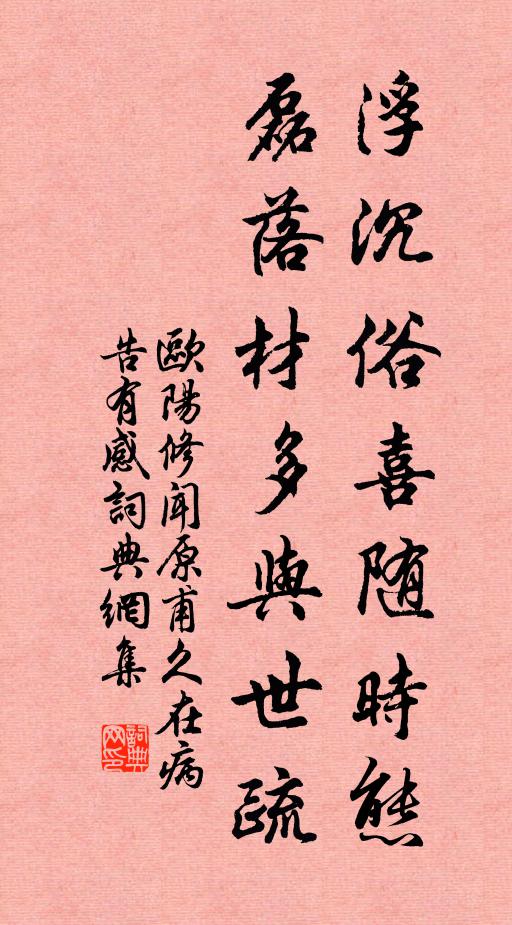 浮沉俗喜随時態
磊落材多與世疏
歐陽修聞原甫久在病
告有感詞典網集
詞典
网印